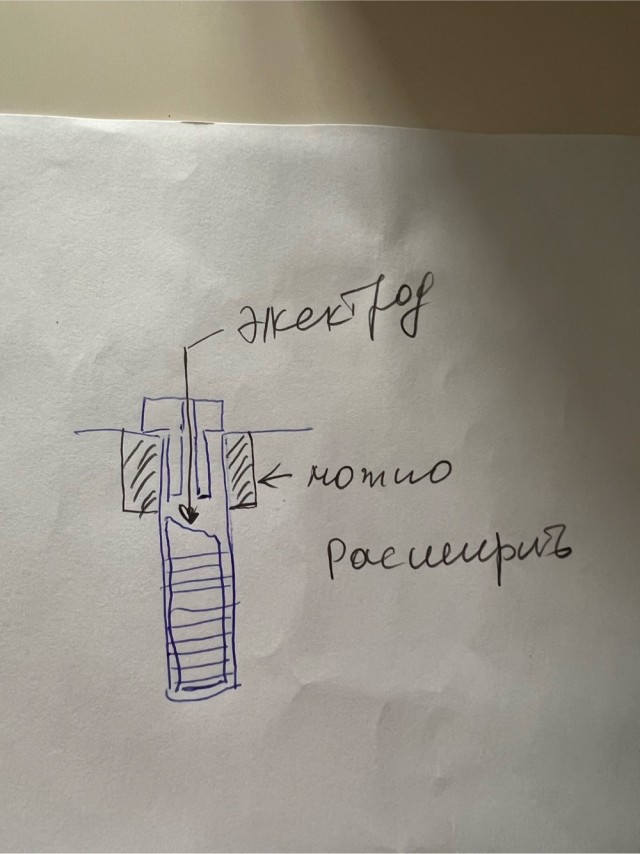 электрод
можно
расширить